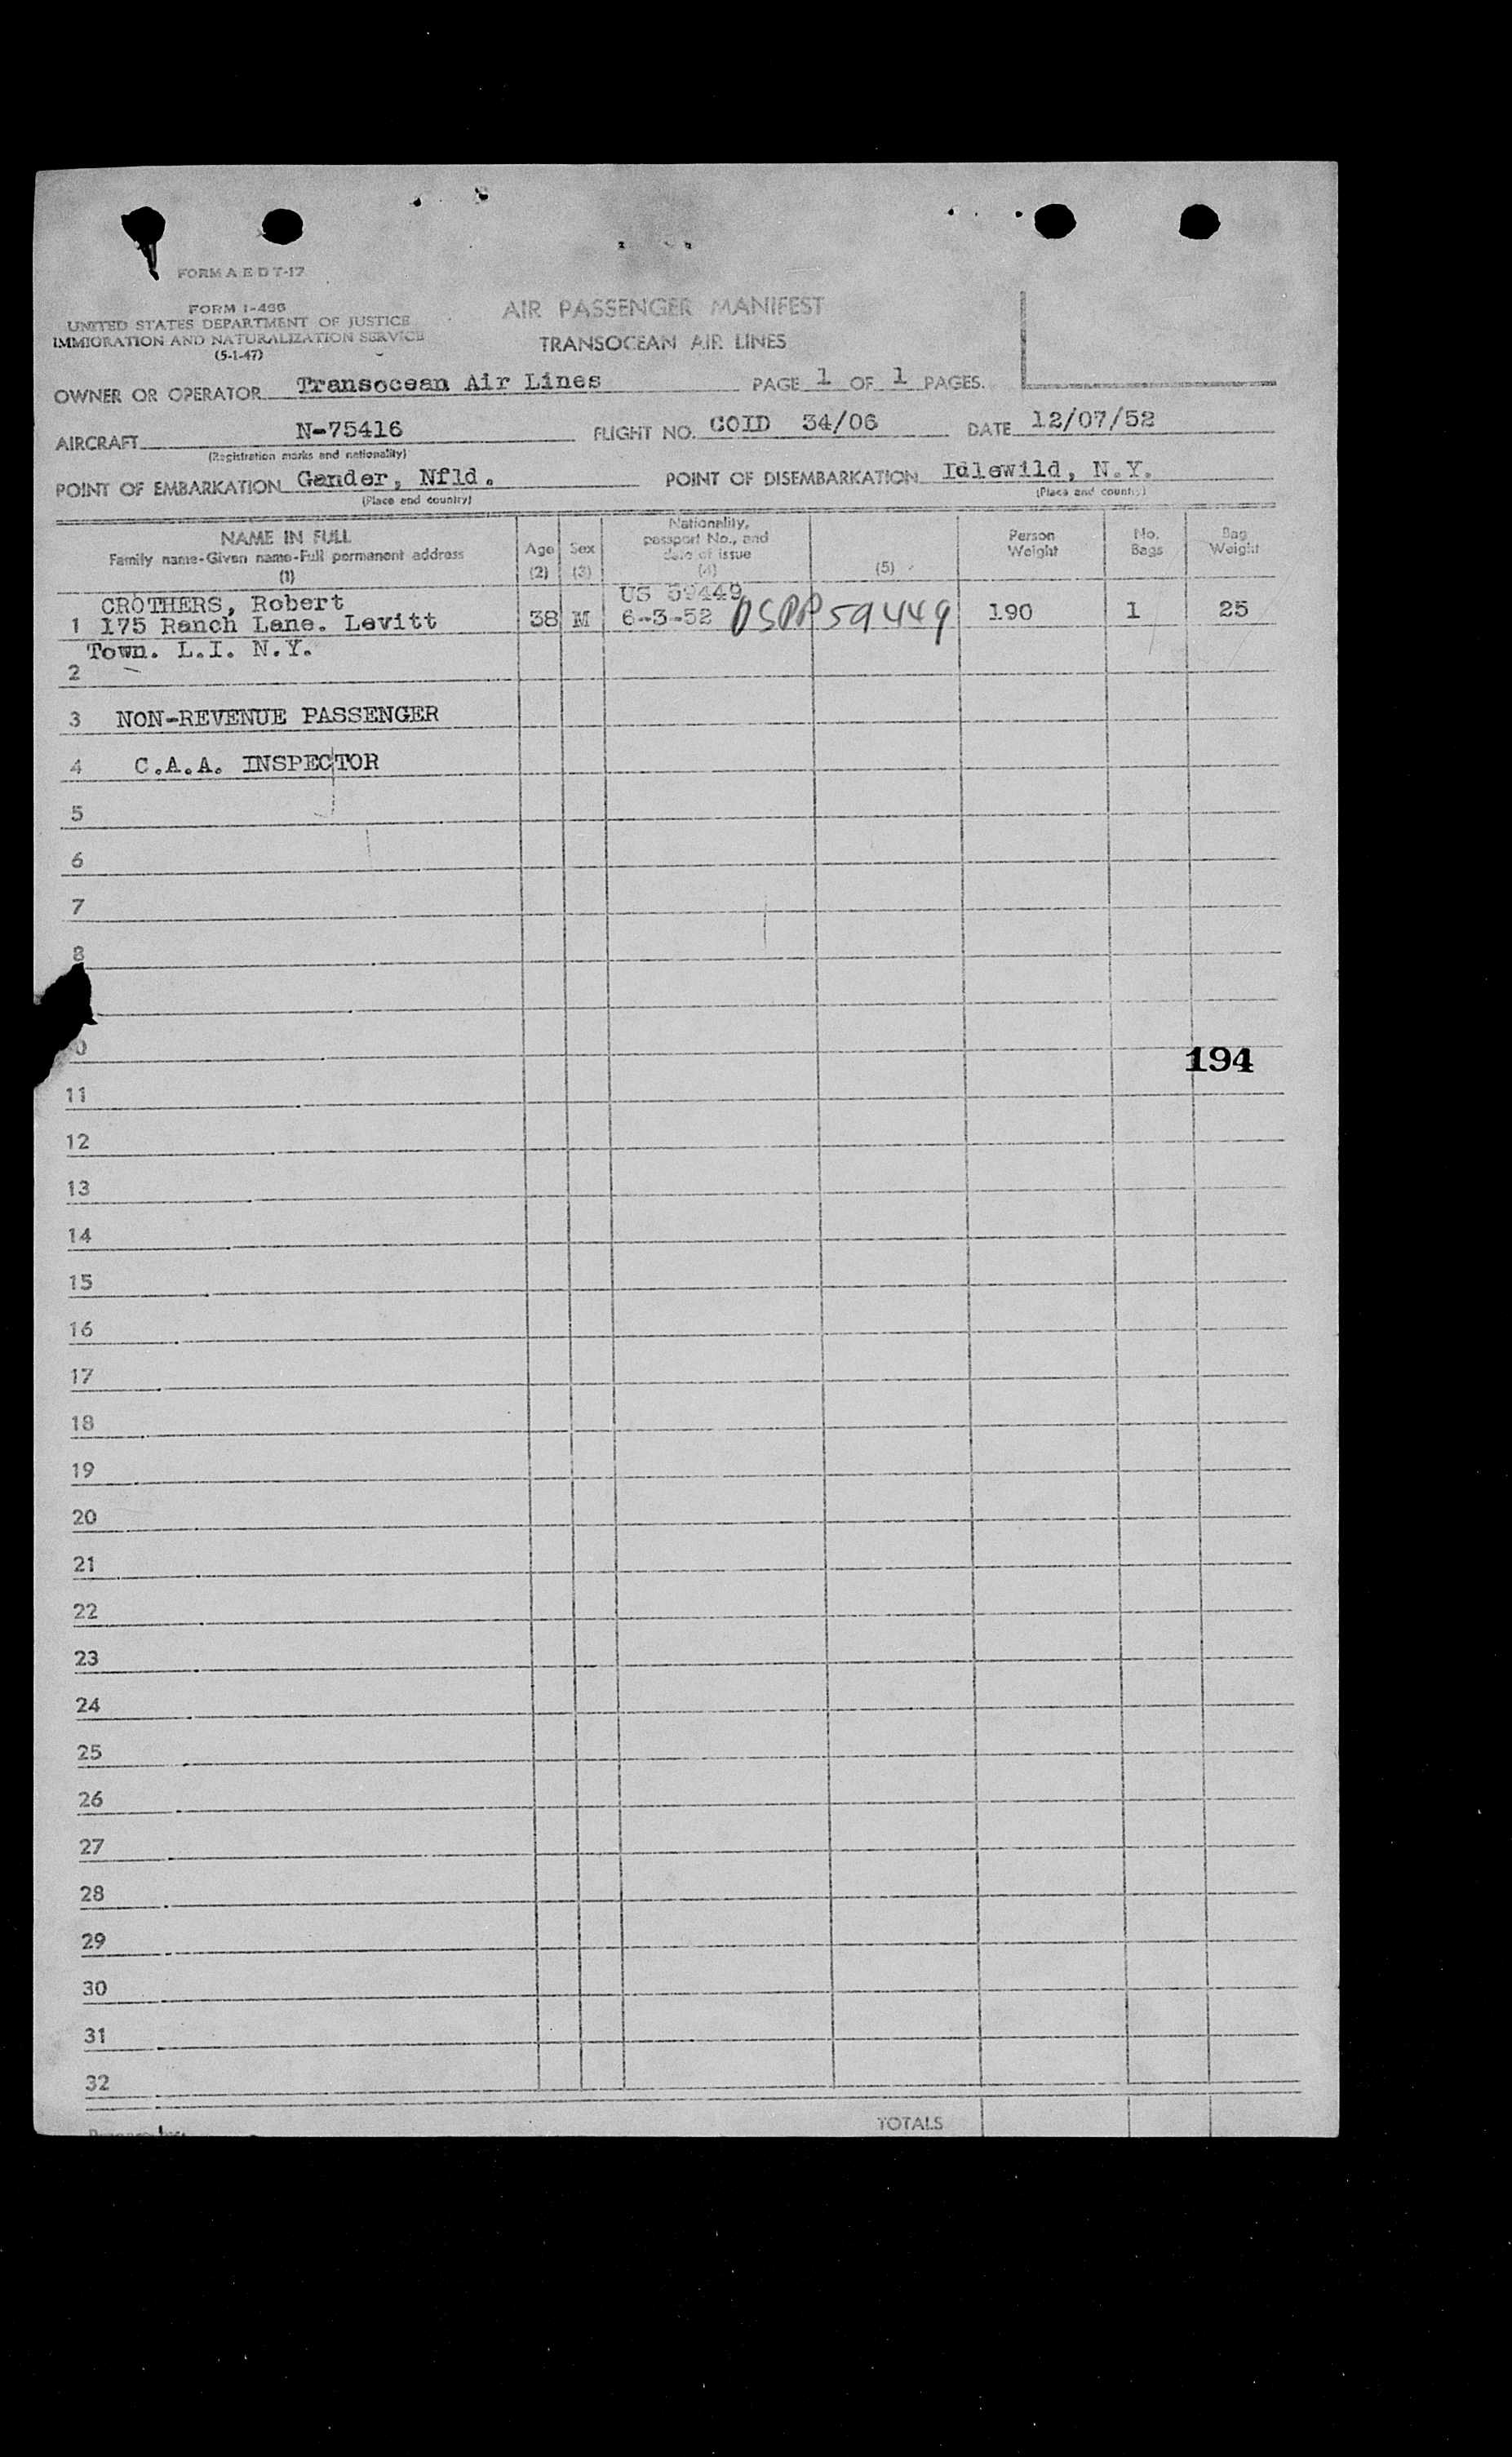 FORM A E D T-17
FORM I-466
UNITED STATES DEPARTMENT OF JUSTICE
IMMIGRATION AND NATURALIZATION SERVICE
(5-1-47)
AIR PASSENGER MANIFEST
TRANSOCEAN AIR LINES
OWNER OR OPERATOR Transocean Air Lines PAGE 1 OF 1 PAGES.
AIRCRAFT N-75416 FLIGHT NO. COID 34/06 DATE 12/07/52
(Registration marks and nationality)
POINT OF EMBARKATION Gander, Nfld. POINT OF DISEMBARKATION Idlewild, N.Y.
(Place and country) (Place and country)
NAME IN FULL
Family name-Given name-Full permanent address
(1)
Age
(2)
Sex
(3)
Nationality,
passport No., and
date of issue
(4)
(5)
Person
Weight
No.
Bags
Bag
Weight
CROTHERS, Robert US 59449
1 175 Ranch Lane. Levitt 38 M 6-3-52 DSPP 59449 190 1 25
Town. L.I. N.Y.
2
3 NON-REVENUE PASSENGER
4 C.A.A. INSPECTOR
5
6
7
8
194
11
12
13
14
15
16
17
18
19
20
21
22
23
24
25
26
27
28
29
30
31
32
TOTALS